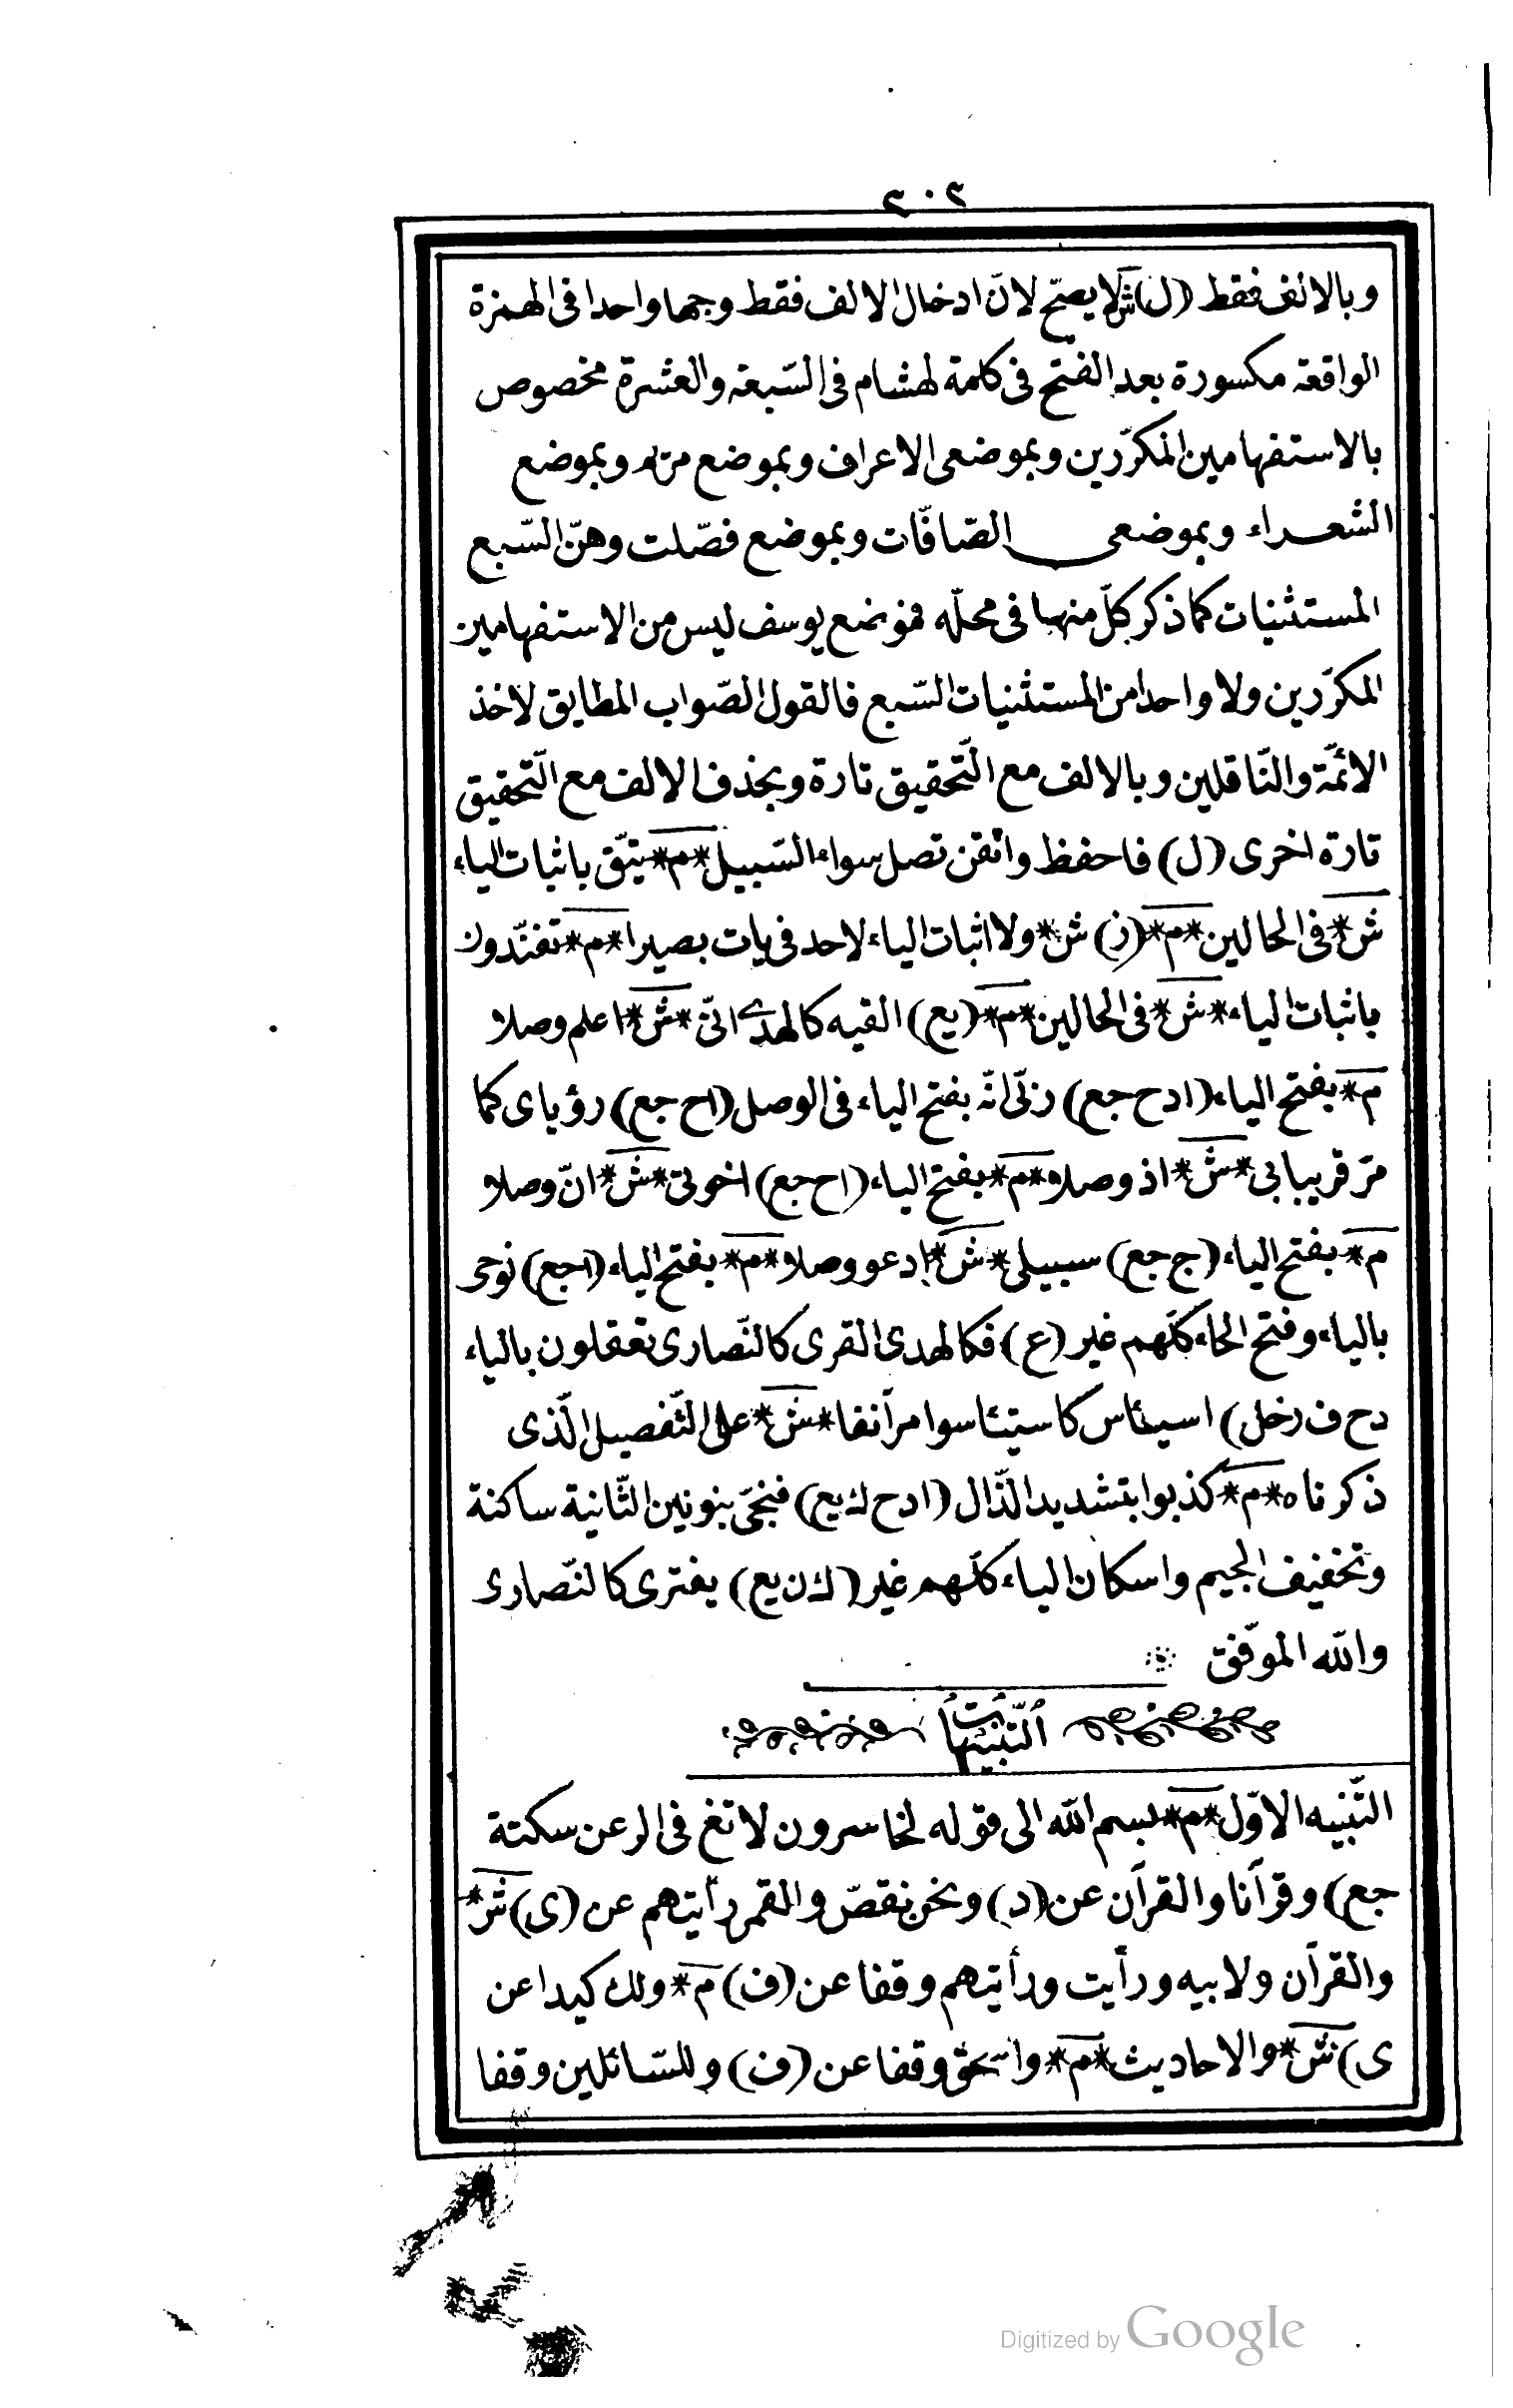 ٢٠٢
وبالالف فقط (ل) ش لا يصحّ لانّ ادخال الالف فقط وجها واحدا فى الهمزة
الواقعة مكسورة بعد الفتح فى كلمة لهشام فى السّبعة والعشرة مخصوص
بالاستفهامين المكرّرين وبموضعى الاعراف وبموضع مريم وبموضع
الشعراء وبموضعى الصّافّات وبموضع فصّلت وهنّ السّبع
المستثنيات كما ذكر كلّ منها فى محلّه فموضع يوسف ليس من الاستفهامين
المكرّرين ولا واحدا من المستثنيات السّبع فالقول الصّواب المطابق لاخذ
الائمّة والنّاقلين وبالالف مع التّحقيق تارة وبحذف الالف مع التّحقيق
تارة اخرى (ل) فاحفظ واتقن تصل سواء السّبيل * م * يتّق باثبات الياء
ش * فى الحالين * م * (ز) ش * ولا اثبات الياء لاحد فى يات بصيرا * م * تفنّدون
باثبات الياء * ش * فى الحالين * م * (يع) القيه كالهدى انّى * ش * اعلم وصلا
م * بفتح الياء (ادح جع) ربّى انّه بفتح الياء فى الوصل (اح جع) رؤياى كما
مرّ قريبا بى * ش * اذ وصلا * م * بفتح الياء (اح جع) اخوتى * ش * انّ وصلا
م * بفتح الياء (ج جع) سبيلى * ش * ادعو وصلا * م * بفتح الياء (اجع) نوحى
بالياء وفتح الحاء كلّهم غير (ع) فكالهدى القرى كالنّصارى تعقلون بالياء
دح ف رخل) استيئاس كاستيئاسوا مر آنفا * ش * على التّفصيل الّذى
ذكرناه * م * كذبوا بتشديد الذّال (ادح ك يع) فنجّى بنونين الثّانية ساكنة
وتخفيف الجيم واسكان الياء كلّهم غير (ك ن يع) يفترى كالنّصارى
والله الموفّق
التّنبيهات
التّنبيه الاوّل * م * بسم الله الى قوله لخاسرون لا تغ فى الر عن سكتة
جع) وقرآنا والقرآن عن (د) ونحن نقصّ والقمر رأيتهم عن (ى) ش *
والقرآن ولابيه ورأيت ورأيتهم وقفا عن (ف) م * ولك كيدا عن
ى) ش * والاحاديث * م * واسحق وقفا عن (ف) وللسّائلين وقفا
Digitized by Google